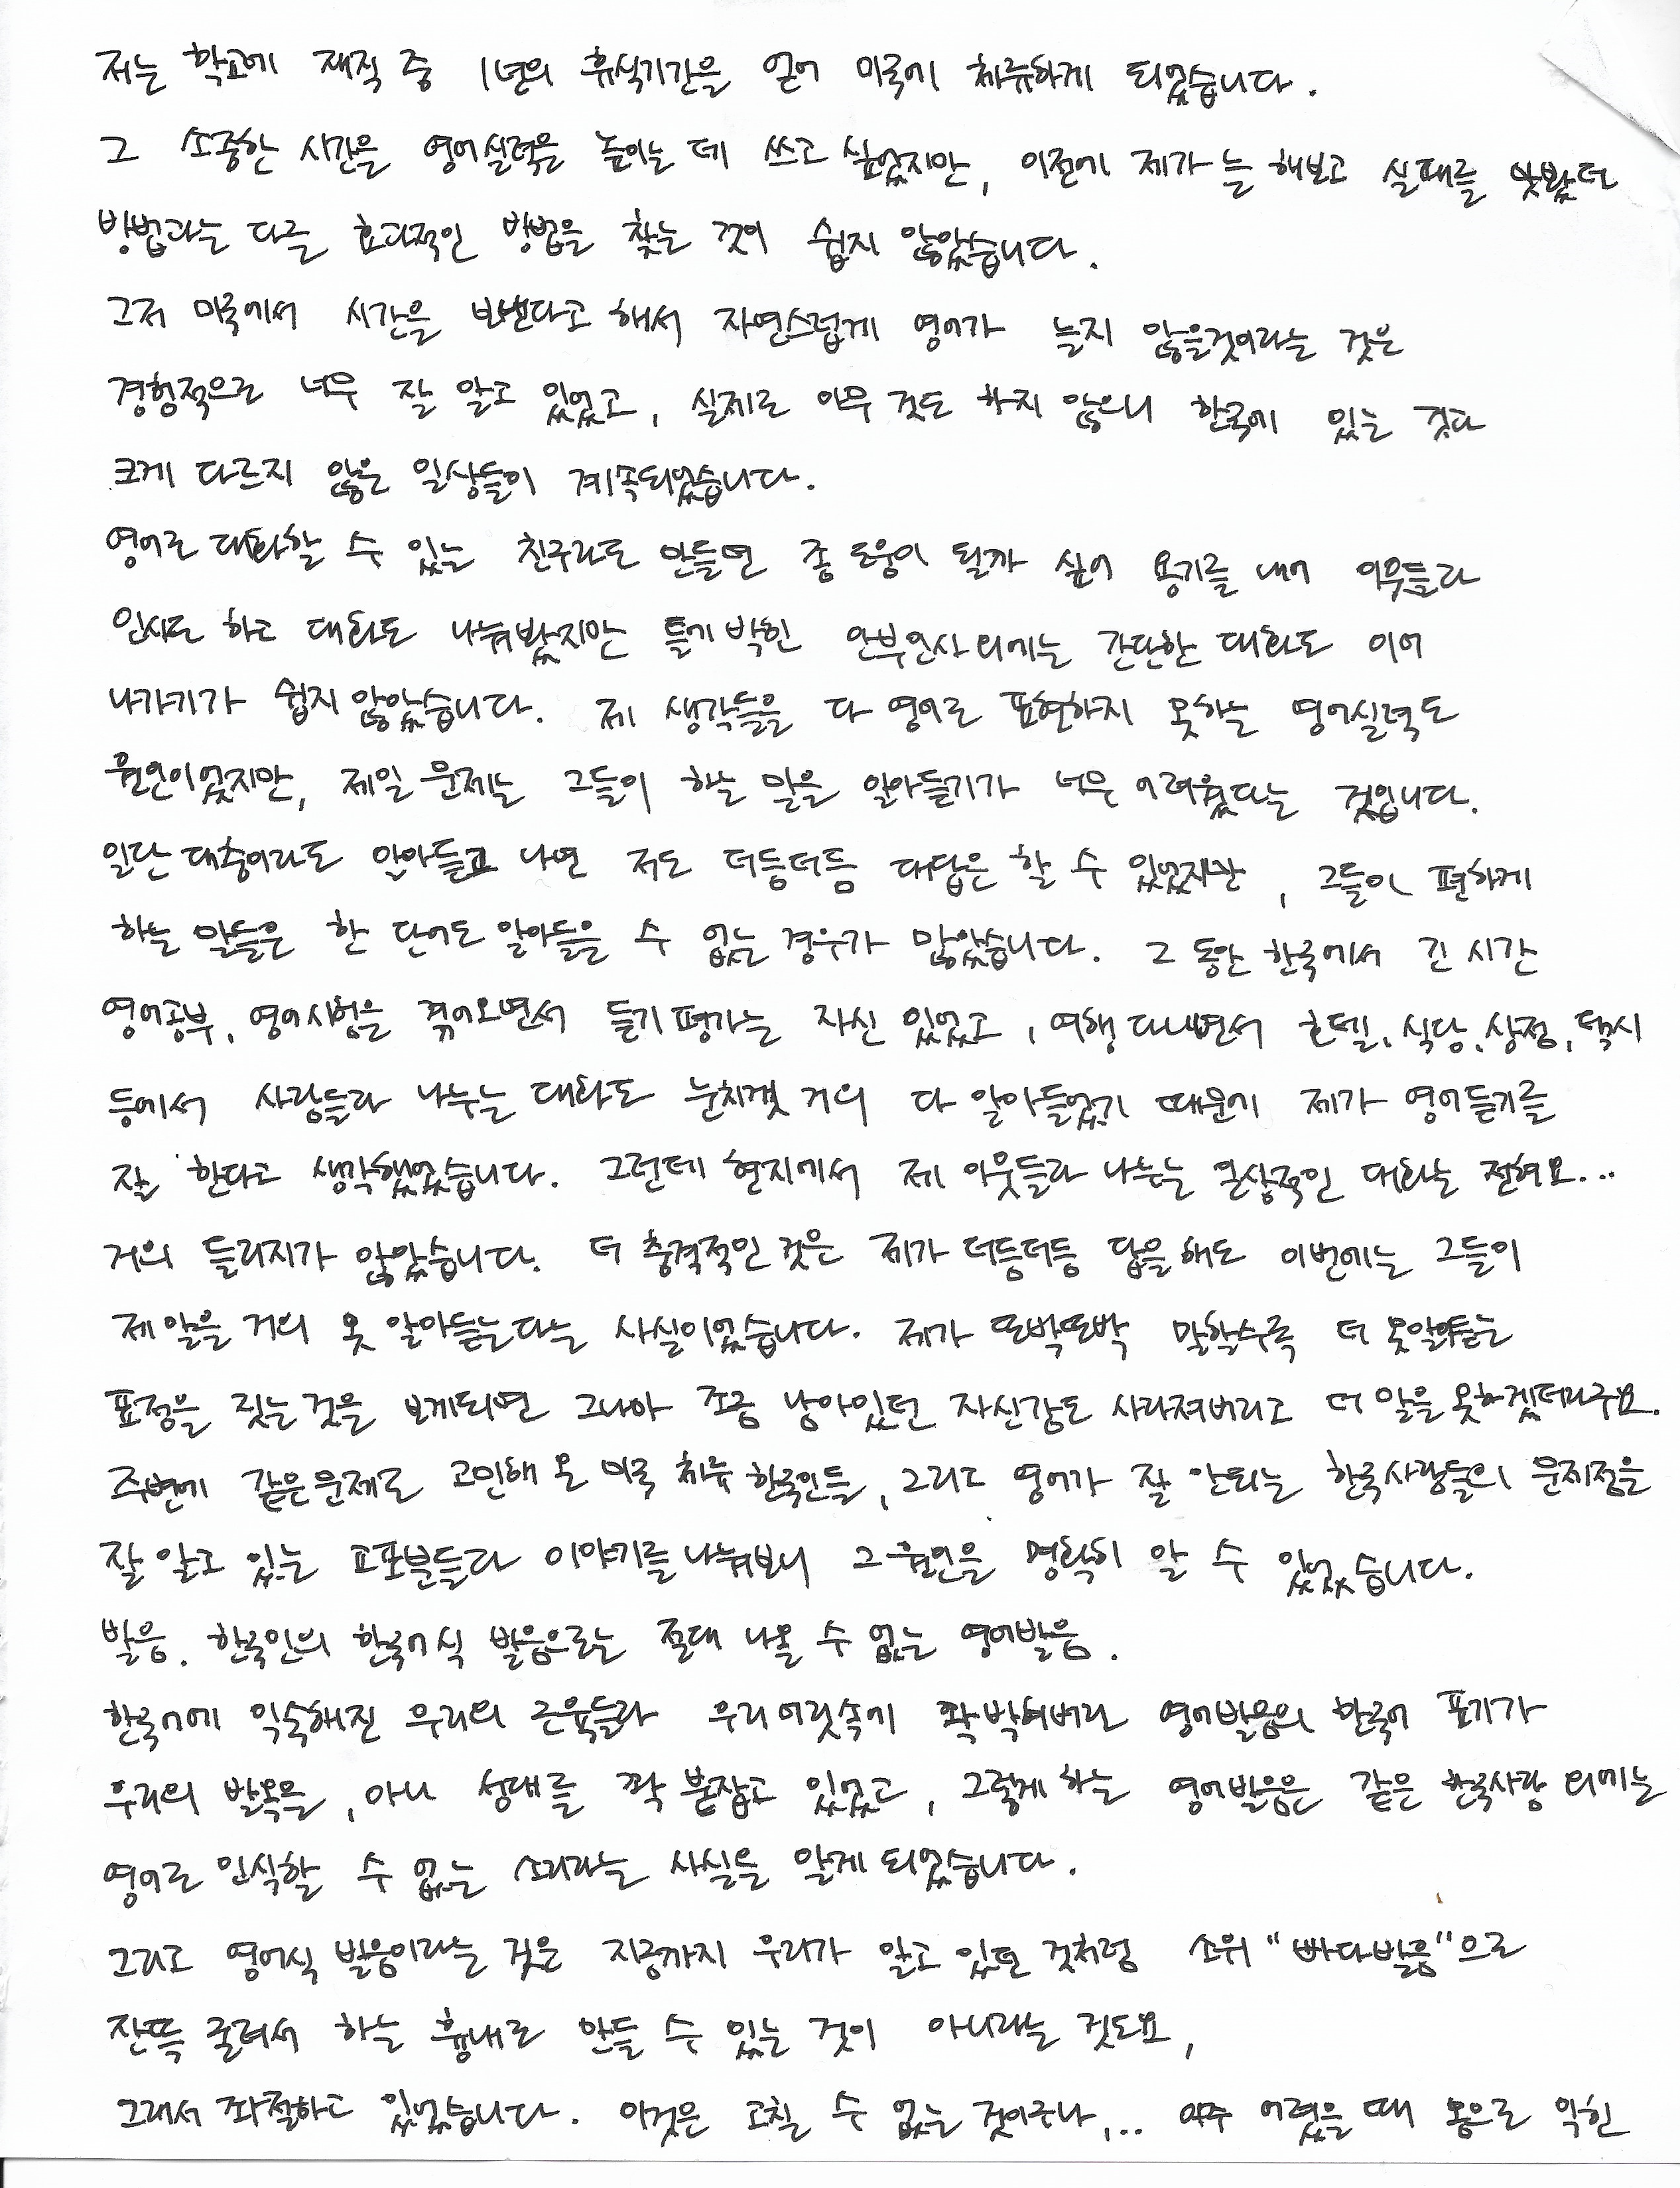 저는 학교에 재직 중 1년의 휴식기간을 얻어 미국에 체류하게 되었습니다.
그 소중한 시간을 영어실력을 높이는 데 쓰고 싶었지만, 이전에 제가 늘 해보고 실패를 맛봤던
방법과는 다른 효과적인 방법을 찾는 것이 쉽지 않았습니다.
그저 미국에서 시간을 보낸다고 해서 자연스럽게 영어가 늘지 않을것이라는 것은
경험적으로 너무 잘 알고 있었고, 실제로 아무 것도 하지 않으니 한국에 있는 것과
크게 다르지 않은 일상들이 계속되었습니다.
영어로 대화할 수 있는 친구라도 만들면 좀 도움이 될까 싶어 용기를 내어 이웃들과
인사도 하고 대화도 나눠봤지만 틀에 박힌 안부인사 외에는 간단한 대화도 이어
나가기가 쉽지 않았습니다. 제 생각들을 다 영어로 표현하지 못하는 영어실력도
원인이었지만, 제일 문제는 그들이 하는 말을 알아듣기가 너무 어려웠다는 것입니다.
일단 대충이라도 알아듣고 나면 저도 더듬더듬 대답은 할 수 있었지만, 그들이 편하게
하는 말들은 한 단어도 알아들을 수 없는 경우가 많았습니다. 그 동안 한국에서 긴 시간
영어공부, 영어시험을 겪어오면서 듣기평가는 자신 있었고, 여행 다니면서 호텔, 식당, 상점, 택시
등에서 사람들과 나누는 대화도 눈치껏 거의 다 알아들었기 때문에 제가 영어듣기를
잘 한다고 생각했었습니다. 그런데 현지에서 제 이웃들과 나누는 일상적인 대화는 전혀요...
거의 들리지가 않았습니다. 더 충격적인 것은 제가 더듬더듬 답을 해도 이번에는 그들이
제 말을 거의 못 알아듣는다는 사실이었습니다. 제가 또박또박 말할수록 더 못알아듣는
표정을 짓는 것을 보게되면 그나마 조금 남아있던 자신감도 사라져버리고 더 말을 못하겠더라구요.
주변에 같은 문제로 고민해 온 미국 체류 한국인들, 그리고 영어가 잘 안되는 한국사람들의 문제점을
잘 알고 있는 교포분들과 이야기를 나눠보니 그 원인을 명확히 알 수 있었습니다.
발음. 한국인의 한국어식 발음으로는 절대 나올 수 없는 영어발음.
한국어에 익숙해진 우리의 근육들과 우리 머릿속에 콱 박혀버린 영어발음의 한국어 표기가
우리의 발목을, 아니 성대를 꽉 붙잡고 있었고, 그렇게 하는 영어발음은 같은 한국사람 외에는
영어로 인식할 수 없는 소리라는 사실을 알게 되었습니다.
그리고 영어식 발음이라는 것은 지금까지 우리가 알고 있던 것처럼 소위 "빠다발음"으로
잔뜩 굴려서 하는 흉내로 만들 수 있는 것이 아니라는 것도요,
그래서 좌절하고 있었습니다. 이것은 고칠 수 없는 것이구나,... 아주 어렸을 때 몸으로 익힌